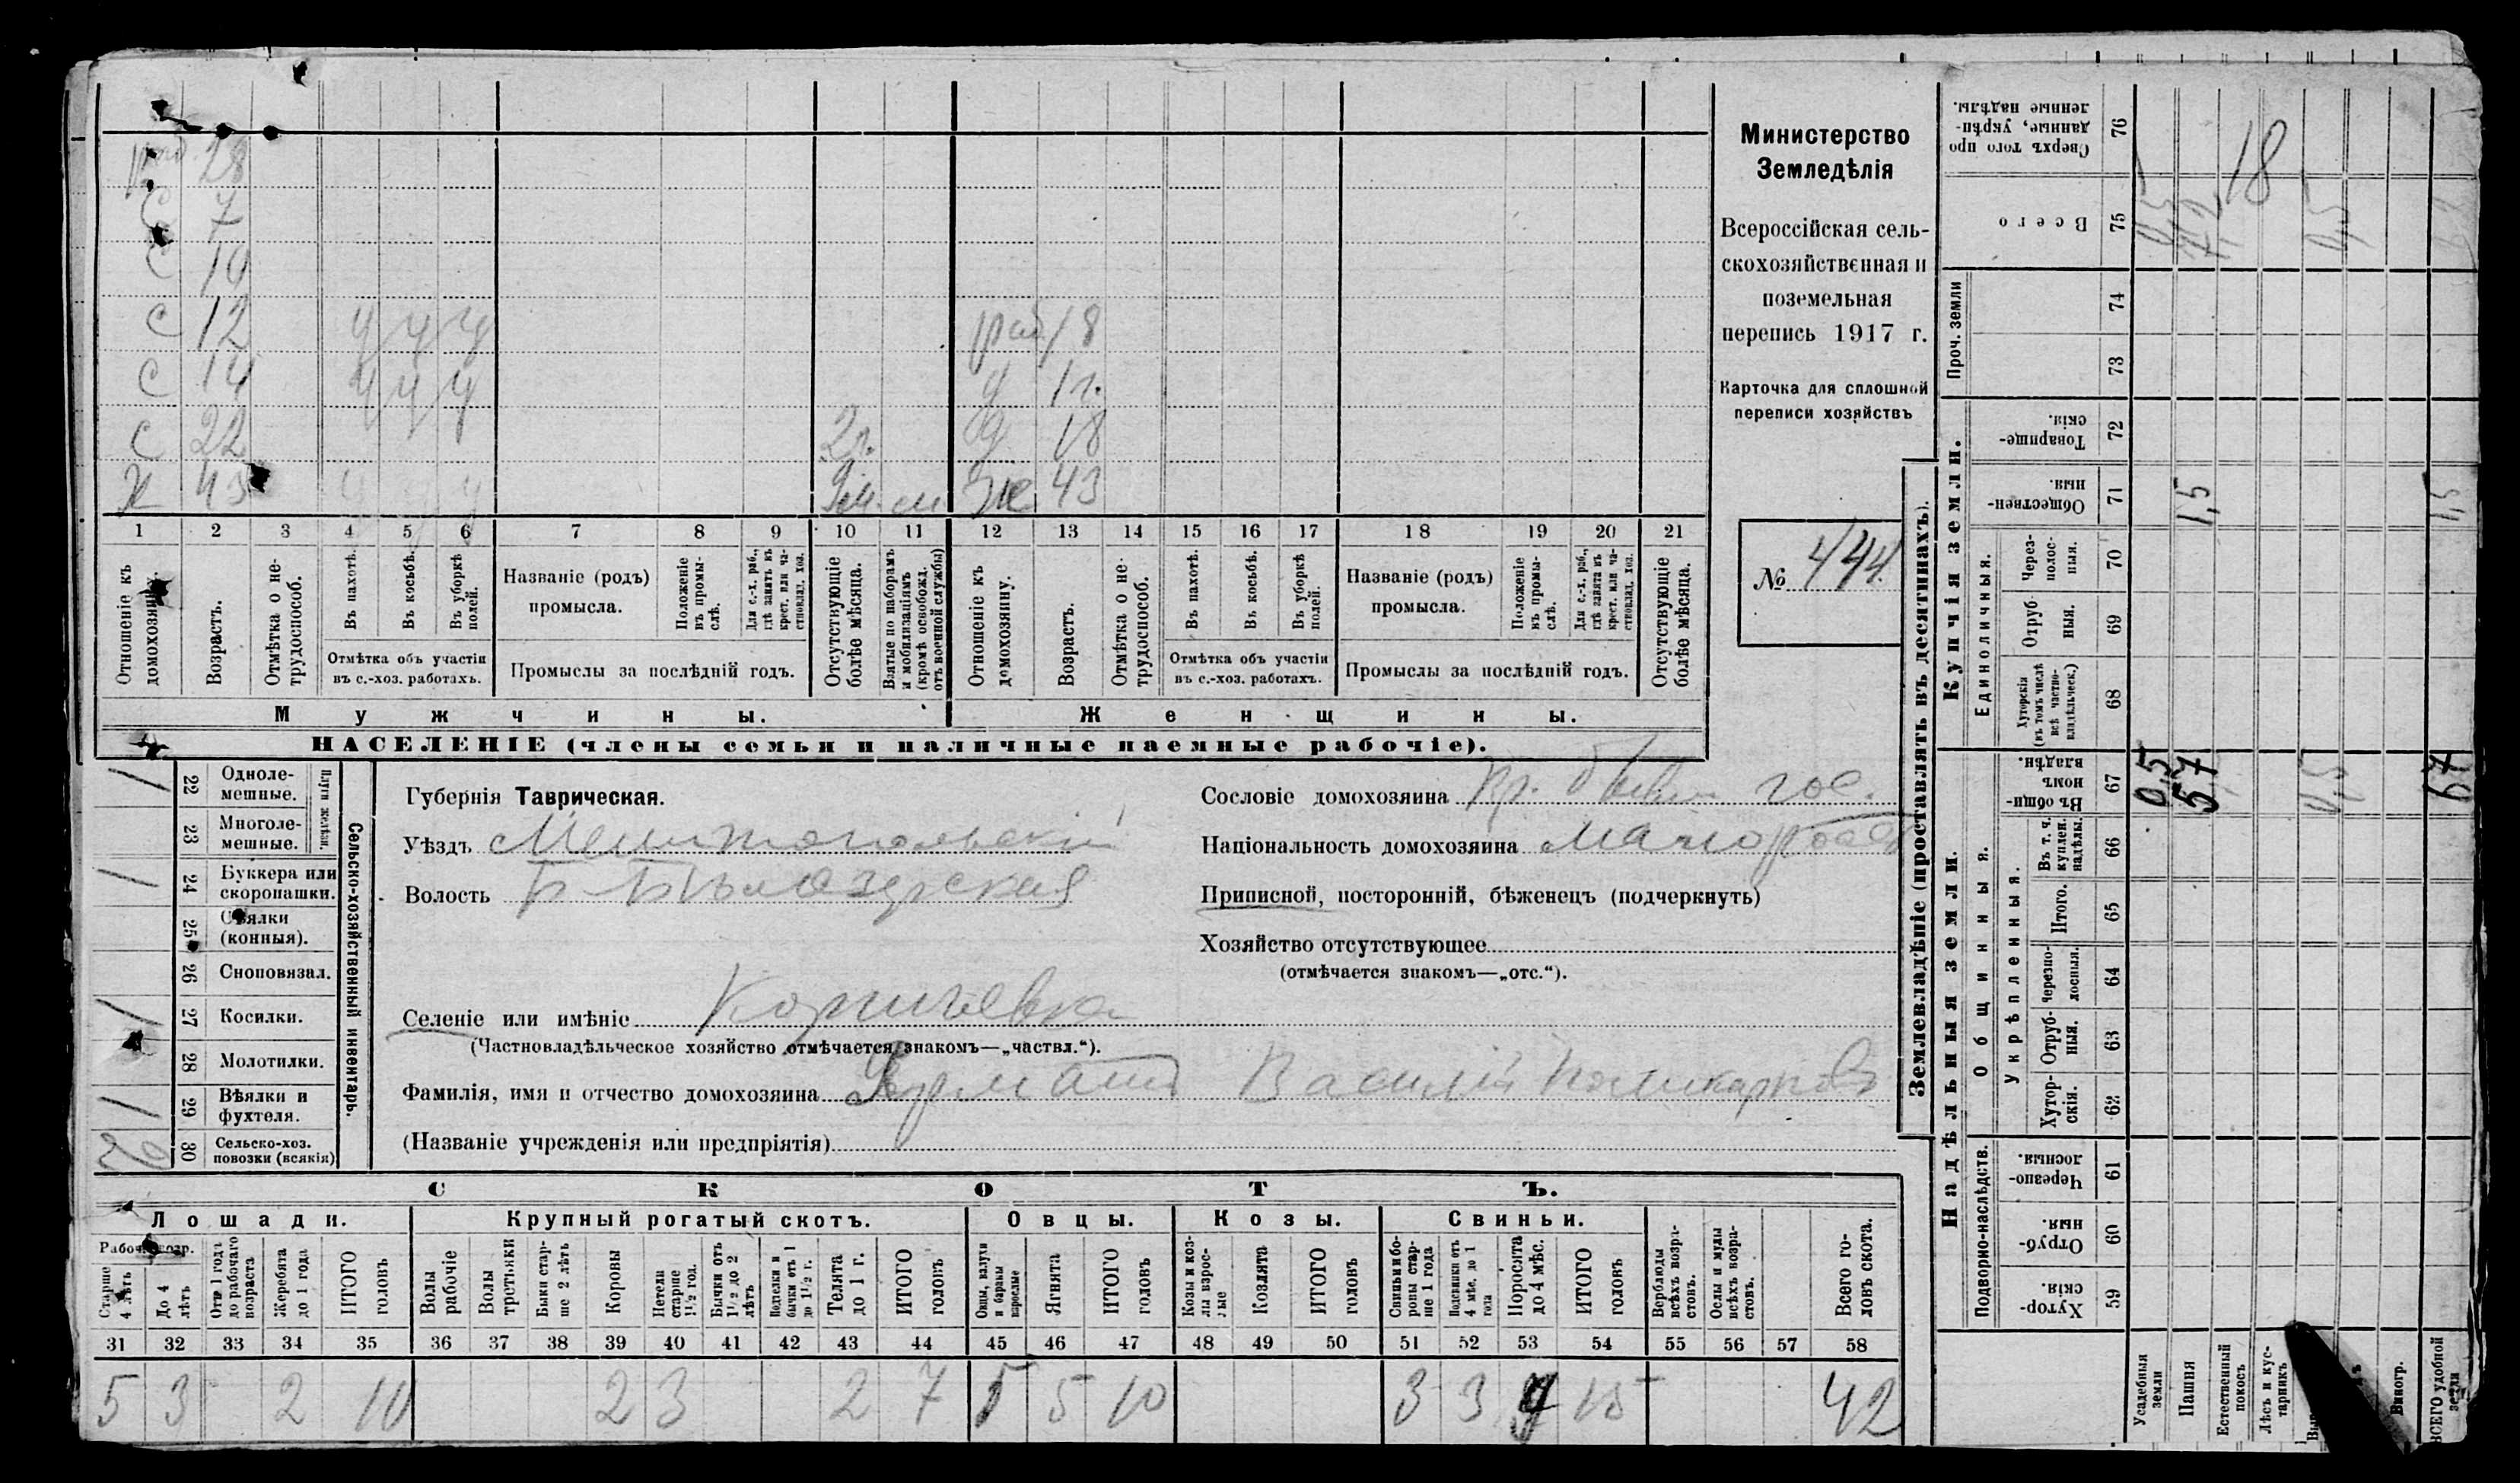 Министерство
Земледѣлія
Всероссійская сель-
скохозяйственная и
поземельная
перепись 1917 г.
Карточка для сплошной
переписи хозяйствъ
№ 444.
раб. 28
С 7
С 10
С 12 ч ч ч раб 18
С 14 ч ч ч д 1 г.
С 22 2 г. д 18
Х 43 ч ч ч Ж 43
1 2 3 4 5 6 7 8 9 10 11 12 13 14 15 16 17 18 19 20 21
Отношеніе къ домохозяину.
Возрастъ.
Отмѣтка о не-трудоспособ.
Въ пахотѣ.
Въ косьбѣ.
Въ уборкѣ полей.
Отмѣтка объ участіи
въ с.-хоз. работахъ.
Названіе (родъ)
промысла.
Положеніе въ промы-слѣ.
Для с.-х. раб., гдѣ занятъ въ крест. или ча-стновлад. хоз.
Промыслы за послѣдній годъ.
Отсутствующіе болѣе мѣсяца.
Взятые по наборамъ и мобилизаціямъ (кромѣ освобожд. отъ военной службы)
Отношеніе къ домохозяину.
Возрастъ.
Отмѣтка о не-трудоспособ.
Въ пахотѣ.
Въ косьбѣ.
Въ уборкѣ полей.
Отмѣтка объ участіи
въ с.-хоз. работахъ.
Названіе (родъ)
промысла.
Положеніе въ промы-слѣ.
Для с.-х. раб., гдѣ занята въ крест. или ча-стновлад. хоз.
Промыслы за послѣдній годъ.
Отсутствующіе болѣе мѣсяца.
Мужчины. Женщины.
НАСЕЛЕНІЕ (члены семьи и наличные наемные рабочіе).
Сельско-хозяйственный инвентарь.
Плуги желѣзн.
22 Одноле-мешные. 1
23 Многоле-мешные.
24 Буккера или скоропашки. 1
25 Сѣялки (конныя).
26 Сноповязал.
27 Косилки. 1
28 Молотилки.
29 Вѣялки и фухтеля. 1
30 Сельско-хоз. повозки (всякія)
Губернія Таврическая.
Уѣздъ Мелитопольскій
Волость Б-Бѣлозерская
Селеніе или имѣніе
(Частновладѣльческое хозяйство отмѣчается знакомъ—„частвл.“).
Фамилія, имя и отчество домохозяина Василій Поликарповъ
(Названіе учрежденія или предпріятія)
Сословіе домохозяина кр. бывш гос.
Національность домохозяина малоросс
Приписной, посторонній, бѣженецъ (подчеркнуть)
Хозяйство отсутствующее
(отмѣчается знакомъ—„отс.“).
СКОТЪ.
Лошади. Крупный рогатый скотъ. Овцы. Козы. Свиньи.
Рабоч. возр.
Старше 4 лѣтъ
До 4 лѣтъ
Отъ 1 годъ до рабочаго возраста
Жеребята до 1 года
ИТОГО головъ
Волы рабочіе
Волы третьяки
Быки стар-ше 2 лѣтъ
Коровы
Нетели старше 1½ год.
Бычки отъ 1½ до 2 лѣтъ
Подтелки и бычки отъ 1 до 1½ г.
Телята до 1 г.
ИТОГО головъ
Овцы, валухи и бараны взрослые
Ягнята
ИТОГО головъ
Козы и коз-лы взрос-лые
Козлята
ИТОГО головъ
Свиньи и бо-ровы стар-ше 1 года
Подсвинки отъ 4 мѣс. до 1 года
Поросята до 4 мѣс.
ИТОГО головъ
Верблюды всѣхъ возра-стовъ.
Ослы и мулы всѣхъ возра-стовъ.
Всего го-ловъ скота.
31 32 33 34 35 36 37 38 39 40 41 42 43 44 45 46 47 48 49 50 51 52 53 54 55 56 57 58
5 3 2 10 2 3 2 7 5 5 10 3 3 9 15 42
Землевладѣніе (проставлять въ десятинахъ).
Надѣльныя земли. Купчія земли.
Подворно-наслѣдств.
Общинныя.
Укрѣпленныя.
Единоличныя.
Проч. земли
59 Хутор-скія
60 Отруб-ныя.
61 Черезпо-лосныя.
62 Хутор-скія.
63 Отруб-ныя.
64 Черезпо-лосныя.
65 Итого.
66 Въ т. ч. куплен. надѣлы.
67 Въ общи-номъ владѣн. 0,5 5,7 0,5 6,7
68 Хуторскія (въ томъ числѣ всѣ частно-владѣльческ.)
69 Отруб-ныя.
70 Через-полос-ныя.
71 Обществен-ныя. 1,5 1,5
72 Товарище-скія.
73
74
75 Всего 0,5 7,2 0,5
76 Сверхъ того про-данные, укрѣп-ленные надѣлы.
18
Усадебныя земли
Пашня
Естественный покосъ
Лѣсъ и кус-тарникъ
Виногр.
ВСЕГО удобной земли